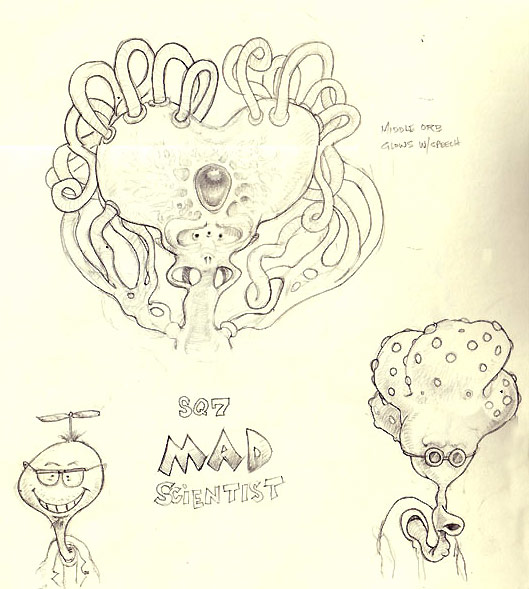 MIDDLE ORB
GLOWS W/SPEECH
SQ7
MAD
SCIENTIST